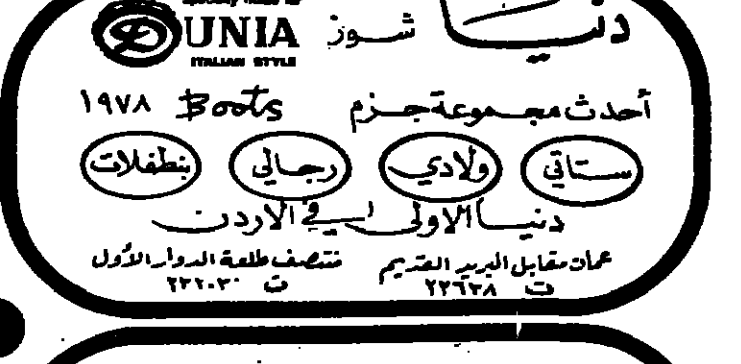 دنيا شوز DUNIA
ITALIAN STYLE
أحدث مجموعة جزم Boots ١٩٧٨
ستاتي ولادي رجالي بنطفلات
دنيا الاولى في الاردن
عمان مقابل البريد القديم منتصف طلعة الدوار الأول
ت ٢٢٦٣٨ ت ٢٣٢٠٣٠